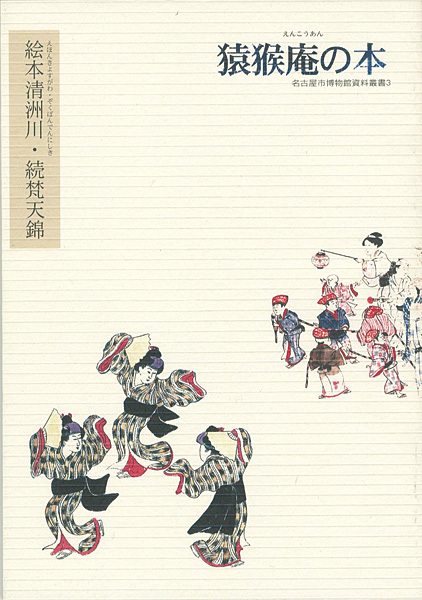 えんこうあん
猿猴庵の本
名古屋市博物館資料叢書3
えほんきよすがわ・ぞくぼんでんにしき
絵本清洲川・続梵天錦